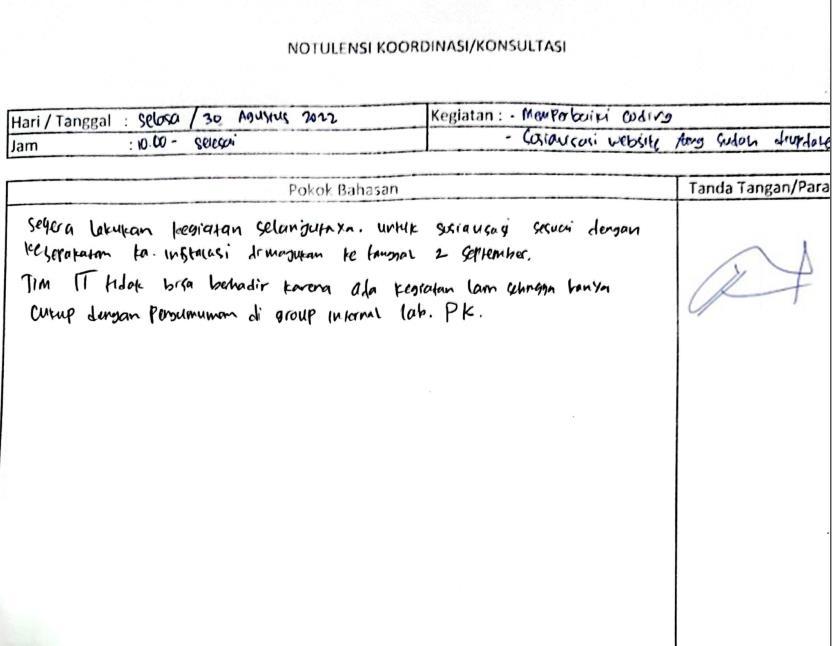 NOTULENSI KOORDINASI/KONSULTASI
Hari / Tanggal : Selasa / 30 Agustus 2022
Kegiatan : - Memperbaiki coding
Jam : 10.00 - selesai
- Sosialisasi website yang sudah diupdate
Pokok Bahasan
Tanda Tangan/Para
Segera lakukan kegiatan selanjutnya. untuk sosialisasi sesuai dengan
kesepakatan ka. instalasi dimajukan ke tanggal 2 September.
Tim IT tidak bisa behadir karena ada kegiatan lain sehingga hanya
cukup dengan pengumuman di group internal lab. PK.